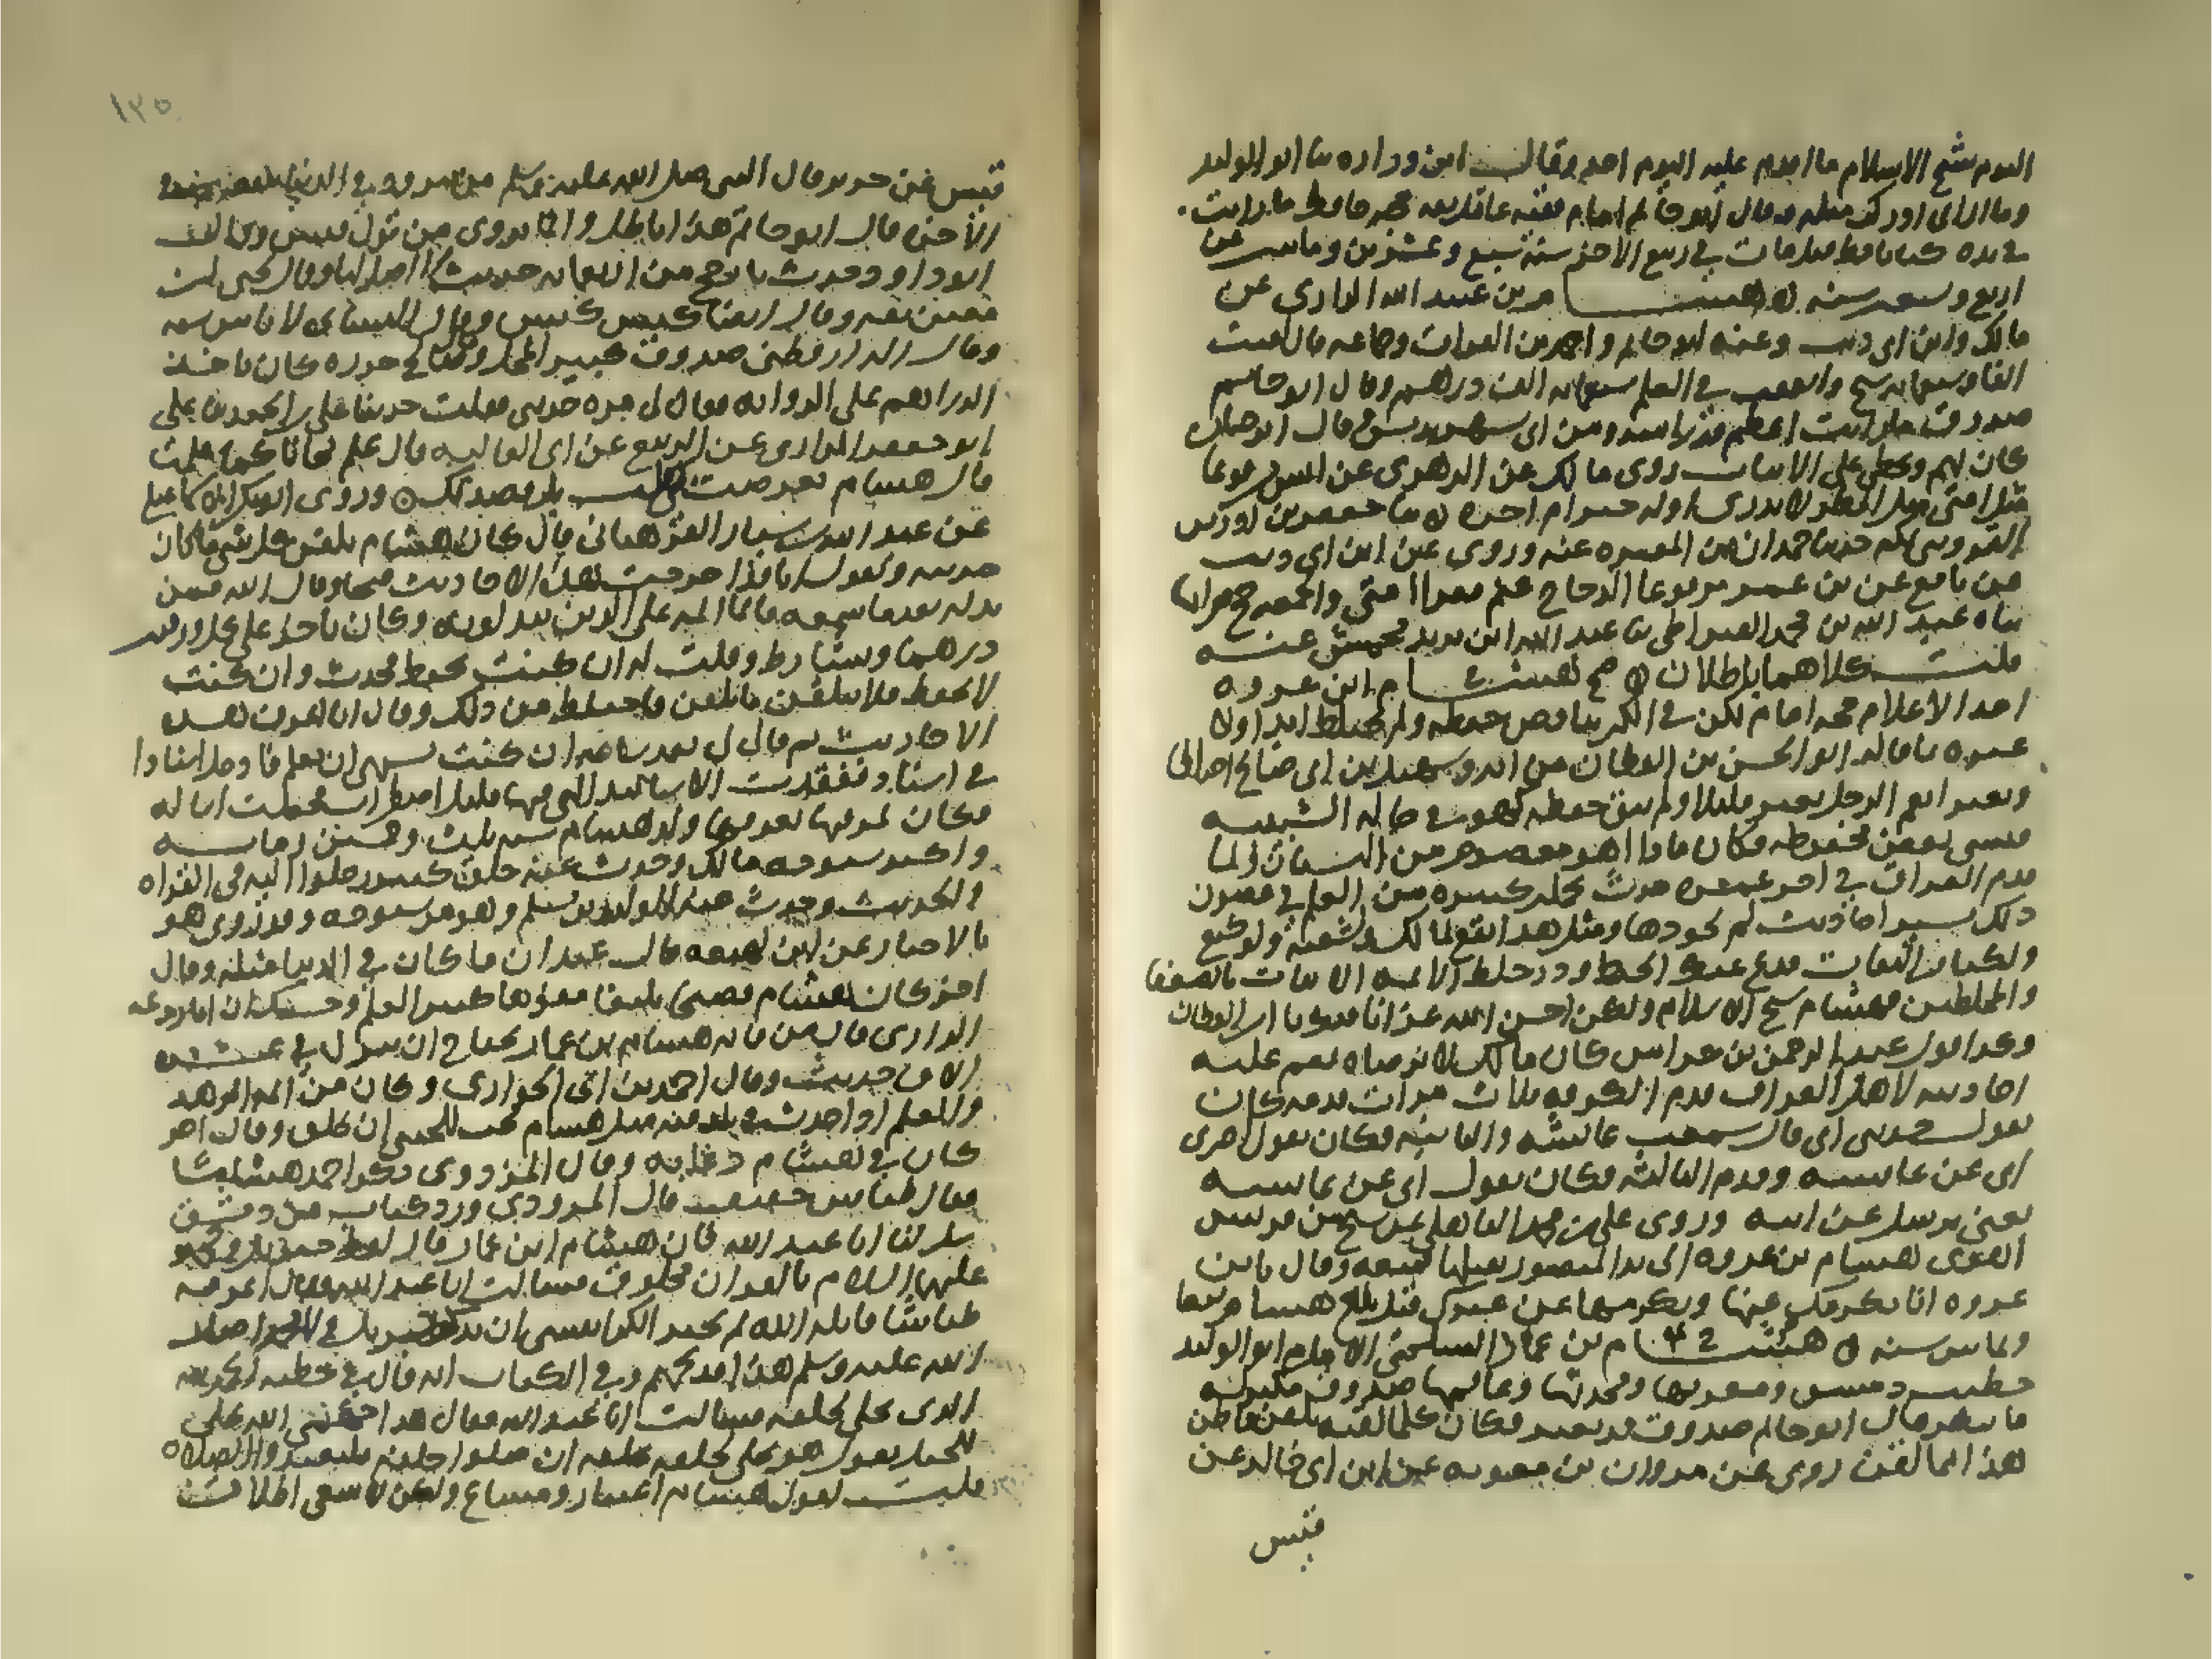 اليوم شيخ الاسلام ما اقدم عليه اليوم احد وقال ابن وراره سا ابو الوليد
وما اراني ادركت مثله وقال ابو حاتم امام فقيه عاقل ثقة حافظ ما رايت
في يده كتابا قط مات في ربيع الاخر سنة سبع وعشرين وماتين عن
اربع وتسعين سنه هشام بن عبيد الله الرازي عن
مالك وابن ابي ذيب وعنه ابو حاتم واحمد بن الفرات وجماعه قال لقيت
الفا وسبعمايه شيخ وانفقت في العلم سبعمايه الف درهم وقال ابو حاتم
صدوق ما رايت اعظم قدرا منه ومن ابي مسهر بدمشق قال ابن حبان
كان يهم ويخطي على الاثبات روى مالك عن الزهري عن انس مرفوعا
مثل امتي مثل المطر لا يدرى اوله خير ام اخره سا جعفر بن ادريس
القزويني بمكه حدثنا حمدان بن المغيره عنه وروى عن ابن ابي ذيب
عن نافع عن بن عمر مرفوعا الدجاج غنم فقرا امتي والجمعه حج فقرايها
ساه عبد الله بن محمد القيراطي سا عبد الله ابن يزيد محمش عنه
قلت كلاهما باطلان صح هشام ابن عروه
احد الاعلام حجه امام لكن في الكبر تناقص حفظه ولم يختلط ابدا ولا
عبره بما قاله ابو الحسن بن القطان من انه وسهيل بن ابي صالح اختلطا
وتغيرا نعم الرجل تغير قليلا ولم يبق حفظه كهو في حاله الشبيبه
فنسي بعض محفوظه فكان ماذا اهو معصوم من النسيان ولما
قدم العراق في اخر عمره حدث بجمله كثيره من العلم في غضون
ذلك يسير احاديث لم يجودها ومثل هذا يقع لمالك ولشعبه ولوكيع
ولكبار الثقات فدع عنك الخبط وذر خلط الايمه الاثبات بالضعفا
والمخلطين فهشام شيخ الاسلام ولكن احسن الله عزانا فيك يا ابن القطان
وكذا قول عبد الرحمن بن خراش كان مالك لا يرضاه نقم عليه
احاديثه لاهل العراق قدم الكوفه ثلاث مرات قدمه كان
يقول حدثني ابي قال سمعت عايشه والثانيه فكان يقول اخبرني
ابي عن عايشه وقدم الثالثه فكان يقول ابي عن عايشه
يعني يرسل عن ابيه وروى علي بن محمد الباهلي عن شيخ من قريش
اهوى هشام بن عروه الى يد المنصور يقبلها فمنعه وقال يا بن
عروه انا نكرمك عنها ونكرمها عن غيرك قيل بلغ هشام سبعا
وثمانين سنه هشام بن عمار السلمي الامام ابو الوليد
خطيب دمشق ومقريها ومحدثها وعالمها صدوق مكثر له
ما ينكر قال ابو حاتم صدوق قد تغير فكان كلما لقنه تلقن واظن
هذا مما لقن روى عن مروان بن معويه عن ابن ابي خالد عن
قيس
١٣٥
قيس عن جرير قال النبي صلى الله عليه وسلم
الاخره قال ابو حاتم هذا باطل وانما يروى من قول قيس وقال
ابو داود حدث بارجح من اربعمايه حديث لا اصل لها وقال يحيى ابن
معين ثقه وقال ايضا كيس كيس وقال النسائي لا باس به
وقال الدارقطني صدوق كبير المحل وقال صالح جزره كان ياخذ
الدراهم على الروايه فقال لي مره حدثني فقلت حدثنا علي بن الجعد سا
ابو جعفر الرازي عن الربيع عن ابي العاليه قال علم مجانا كما علمت
قال هشام تعرضت قلت بل قصدتك وروى ابو بكر الاسماعيلي
عن عبد الله بن سيار الفرهياني قال كان هشام يلقن كل شي ما كان
حديثه ويقول انا قد اخرجت هذه الاحاديث صحاحا وقال الله فمن
بدله بعدما سمعه فانما اثمه على الذين يبدلونه وكان ياخذ على كل ورقتين
درهما ويشارط وقلت له ان كنت تحفظ فحدث وان كنت
لا تحفظ فلا تلقن ما تلقن فاختلط من ذلك وقال انا اعرف هذه
الاحاديث ثم قال لي بعد ساعه ان كنت تشتهي ان تعلم فادخل اسنادا
في اسناد فتفقدت الاسانيد التي فيها قليل اضطراب فجعلت اساله
فكان يمر فيها يعرفها ولد هشام سنه ثلاث وخمسين ومايه
واكبر شيوخه مالك وحدث عنه خلق كثير رحلوا اليه في القراه
والحديث وحدث عنه الوليد بن مسلم وهو من شيوخه وقد روى هو
بالاجازه عن ابن لهيعه قال عبدان ما كان في الدنيا مثله وقال
اخر كان هشام فصيحا بليغا مفوها كثير العلم
الرازي قال من فاته هشام بن عمار يحتاج ان ينزل في عشره
الاف حديث وقال احمد بن ابي الحواري وكان من ايمه الزهد
والعلم اذا حدثت في بلد فيه مثل هشام يجب للحيتي ان تحلق وقال اخر
كان في هشام دعابه وقال المروذي ذكر احمد هشاما
فقال طياش خفيف قال المروذي ورد كتاب من دمشق
سل لنا ابا عبد الله فان هشام ابن عمار قال لفظ جبريل ومحمد
عليهما السلام بالقران مخلوق فسالت ابا عبد الله فقال اعرفه
طياشا قاتله الله لم يجتر الكرابيسي ان يذكر جبريل ولا محمدا صلى
الله عليه وسلم هذا قد تجهم وفي الكتاب انه قال في خطبه الحمد لله
الذي تجلى لخلقه بخلقه فسالت ابا عبد الله فقال هذا جهمي الله تجلى
للجبل يقول هو تجلى لخلقه بخلقه ان صلوا خلفه فليعيدوا الصلاه
قلت لقول هشام اعتبار ومساغ ولكن لا ينبغي اطلاق